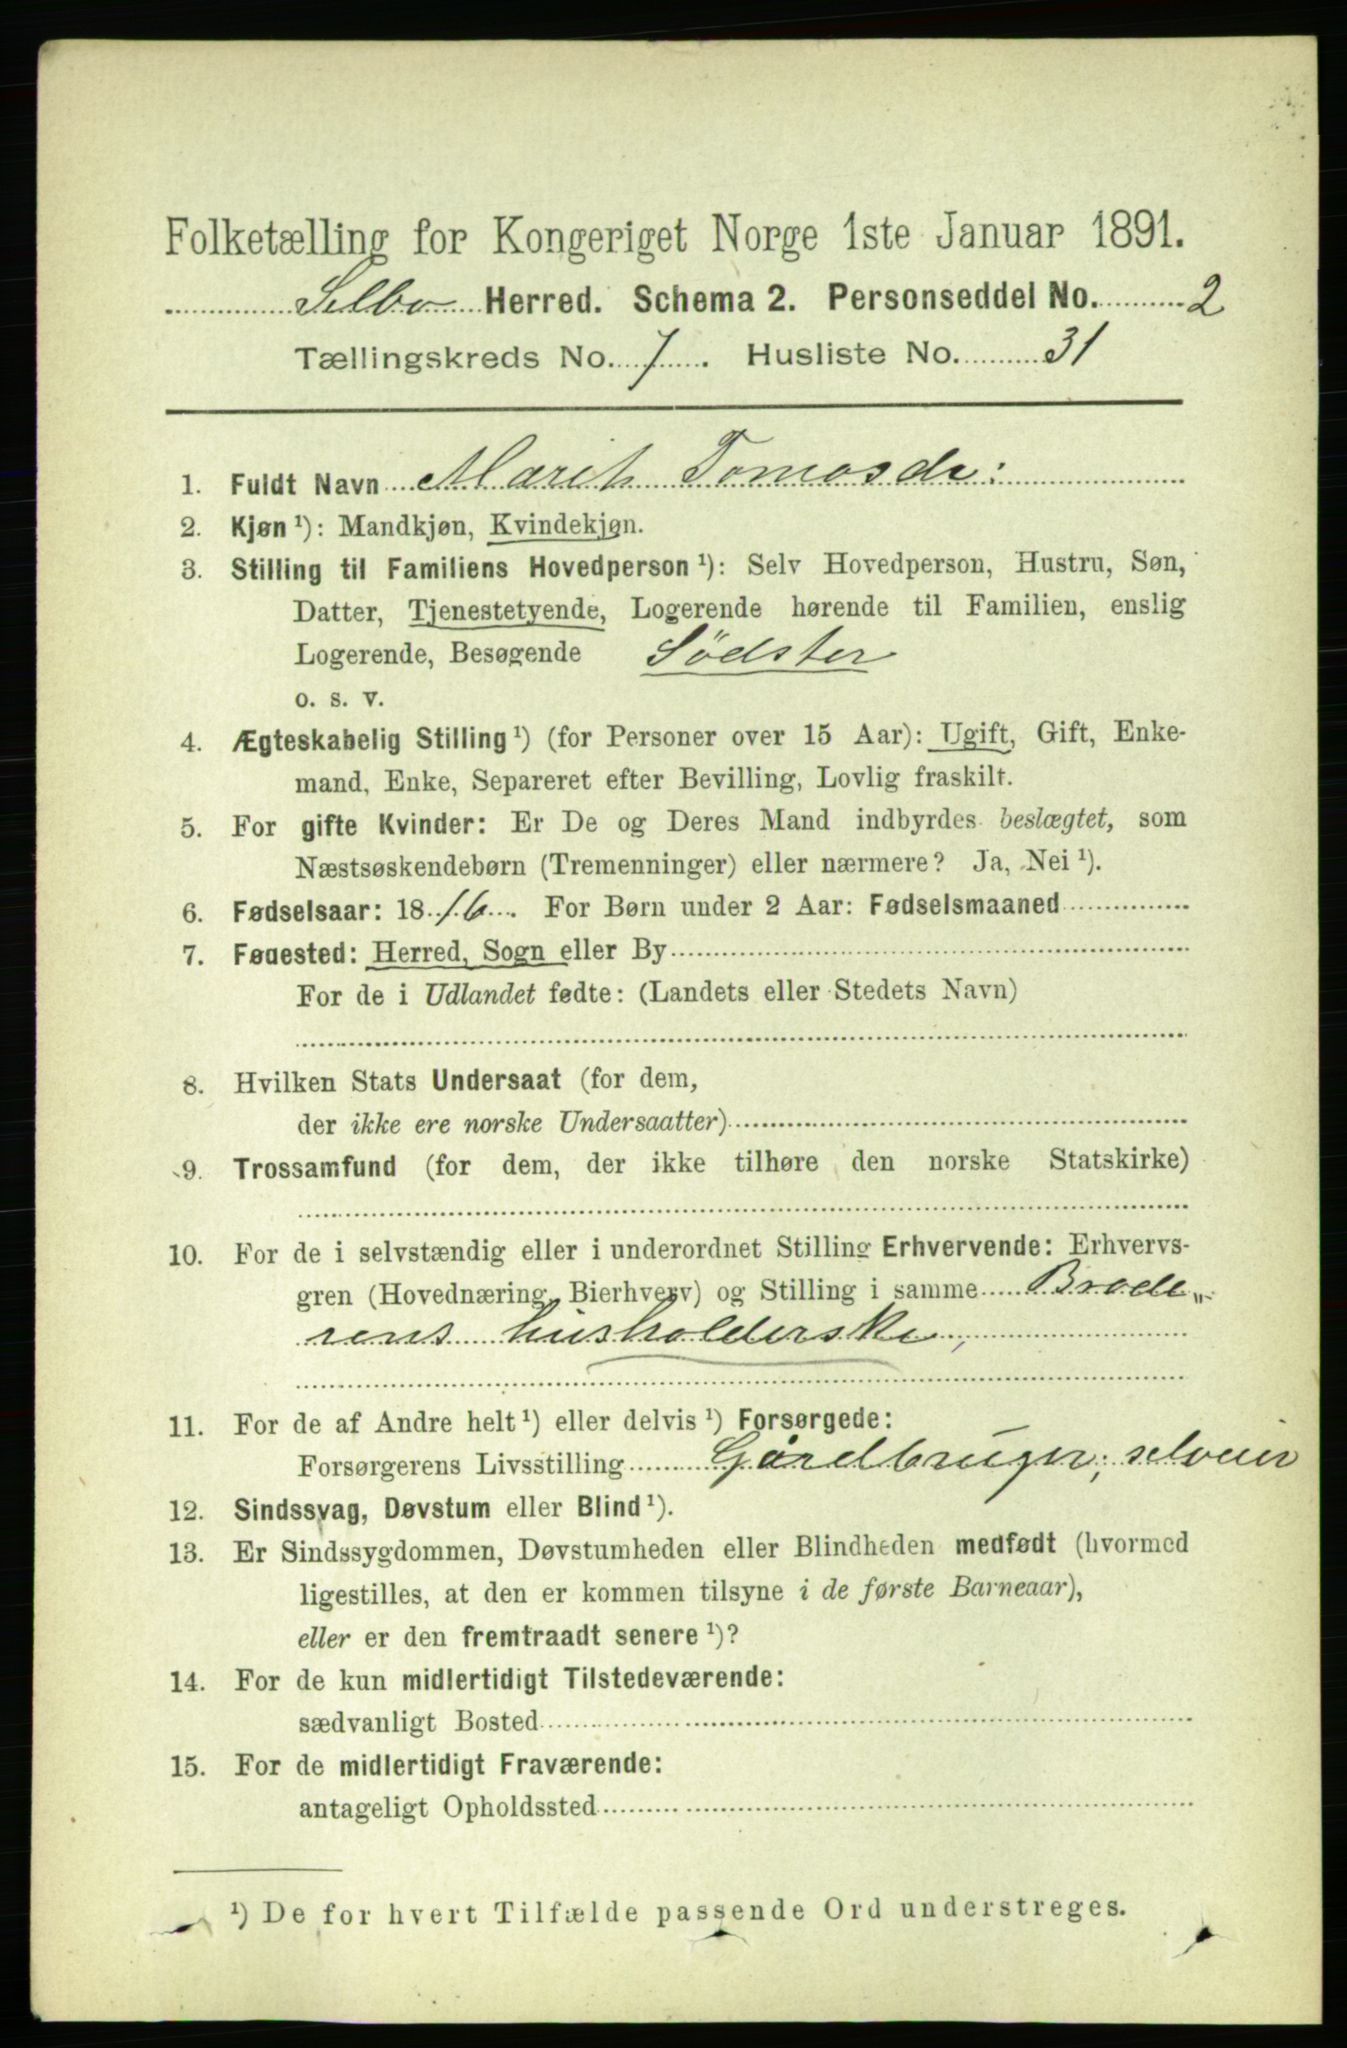 Folketælling for Kongeriget Norge 1ste Januar 1891.
Selbo Herred. Schema 2. Personseddel No. 2
Tællingskreds No. 7. Husliste No. 31
1. Fuldt Navn Marith Tomasdr:
2. Kjøn ¹): Mandkjøn, Kvindekjøn.
3. Stilling til Familiens Hovedperson ¹): Selv Hovedperson, Hustru, Søn,
Datter, Tjenestetyende, Logerende hørende til Familien, enslig
Logerende, Besøgende Södster
o. s. v.
4. Ægteskabelig Stilling ¹) (for Personer over 15 Aar): Ugift, Gift, Enke-
mand, Enke, Separeret efter Bevilling, Lovlig fraskilt.
5. For gifte Kvinder: Er De og Deres Mand indbyrdes beslægtet, som
Næstsøskendebørn (Tremenninger) eller nærmere? Ja, Nei ¹).
6. Fødselsaar: 1816. For Børn under 2 Aar: Fødselsmaaned
7. Fødested: Herred, Sogn eller By
For de i Udlandet fødte: (Landets eller Stedets Navn)
8. Hvilken Stats Undersaat (for dem,
der ikke ere norske Undersaatter)
9. Trossamfund (for dem, der ikke tilhøre den norske Statskirke)
10. For de i selvstændig eller i underordnet Stilling Erhvervende: Erhvervs-
gren (Hovednæring, Bierhverv) og Stilling i samme Brode„
rens husholderske,
11. For de af Andre helt ¹) eller delvis ¹) Forsørgede:
Forsørgerens Livsstilling Gårdbruger, selveier
12. Sindssvag, Døvstum eller Blind ¹).
13. Er Sindssygdommen, Døvstumheden eller Blindheden medfødt (hvormed
ligestilles, at den er kommen tilsyne i de første Barneaar),
eller er den fremtraadt senere ¹)?
14. For de kun midlertidigt Tilstedeværende:
sædvanligt Bosted
15. For de midlertidigt Fraværende:
antageligt Opholdssted
¹) De for hvert Tilfælde passende Ord understreges.